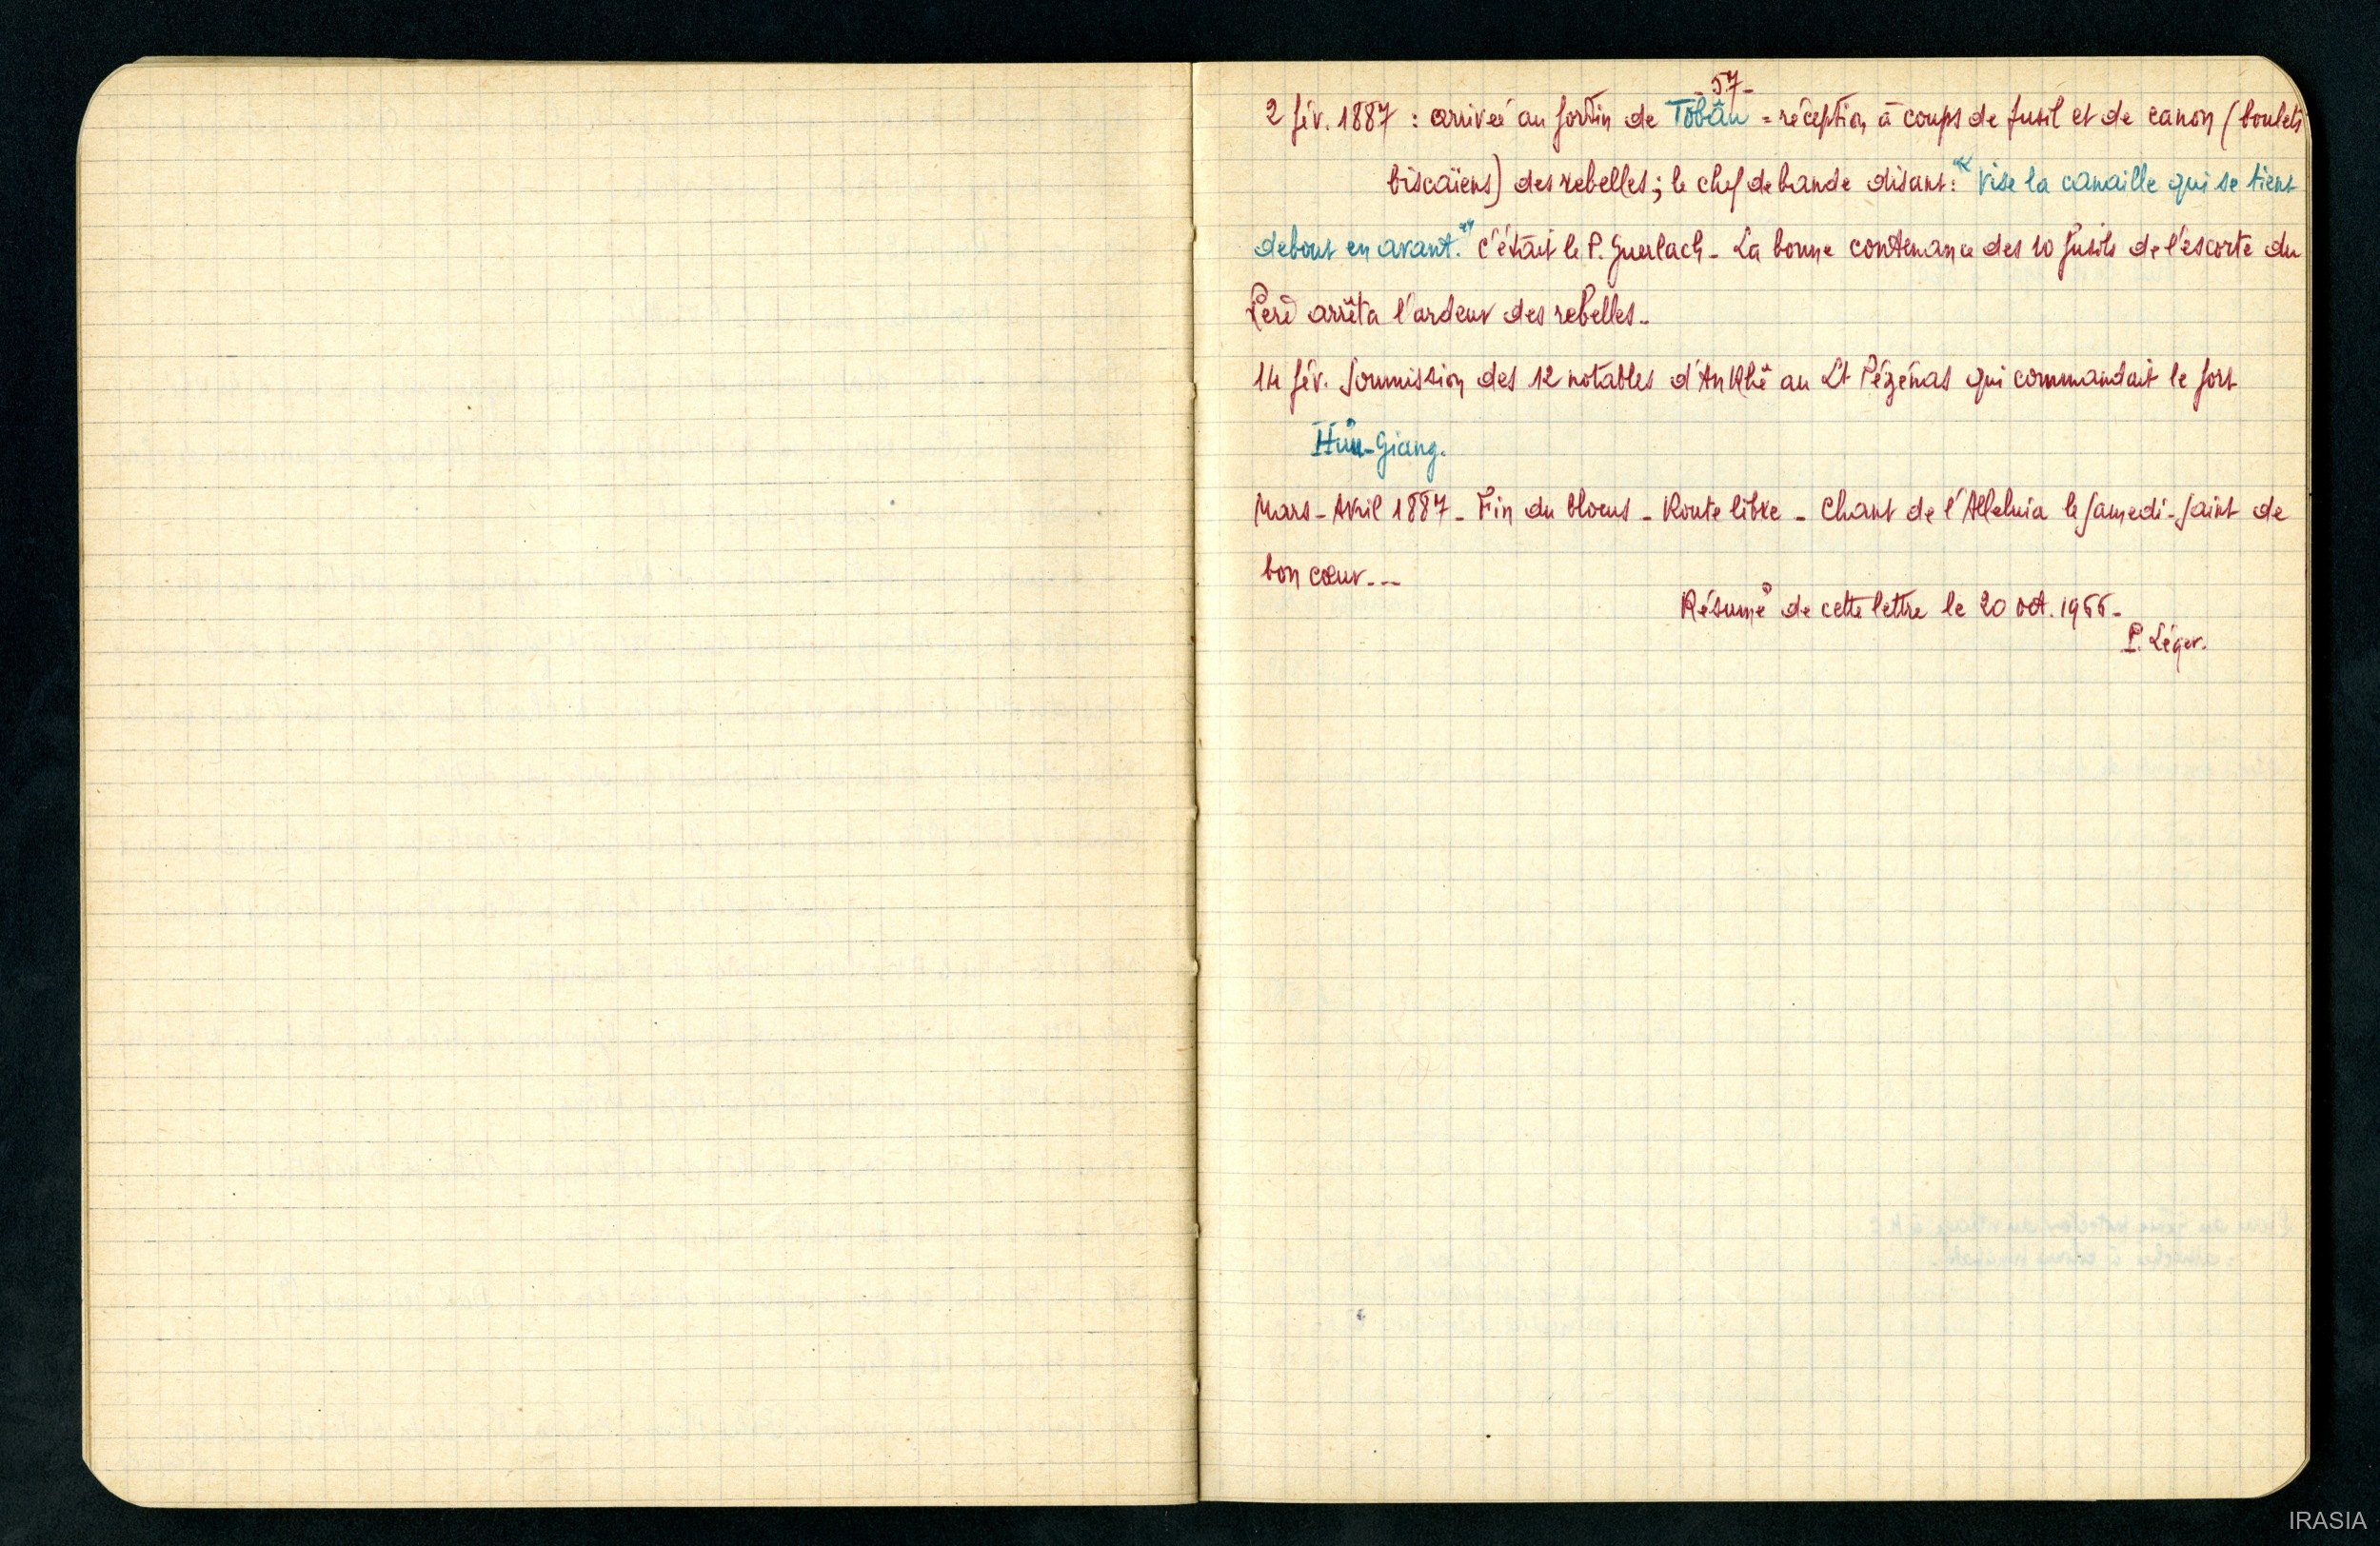 - 57 -
2 fév. 1887 : arrivée au fortin de Tôbâu = réception à coups de fusil et de canon (boulets
biscaïens) des rebelles ; le chef de bande disant : " Vise la canaille qui se tient
debout en avant." C'était le P. Guerlach - La bonne contenance des 10 fusils de l'escorte du
Père arrêta l'ardeur des rebelles -
14 fév. Soumission des 12 notables d'An Khê au Lt Pézénas qui commandait le fort
Hữu-Giang.
Mars - Avril 1887 - Fin du blocus - Route libre - Chant de l'Alleluia le samedi-saint de
bon cœur - --
Résumé de cette lettre le 20 oct. 1966 -
P. Léger.
IRASIA